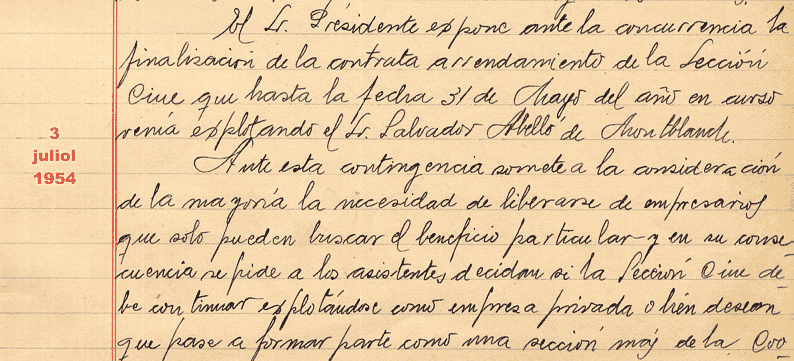 El Sr. Présidente expone ante la concurrencia la
finalización de la contrata arrendamiento de la Sección
Cine que hasta la fecha 31 de Mayo del año en curso
venía explotando el Sr. Salvador Abelló de Montblanch.
Ante esta contingencia somete a la consideración
de la mayoría la necesidad de liberarse de empresarios
que solo pueden buscar el beneficio particular y en su conse
cuencia se pide a los asistentes decidan si la Sección Cine de
be continuar explotándose como empresa privada o bién desean
que pase a formar parte como una sección más de la Coo
3
juliol
1954